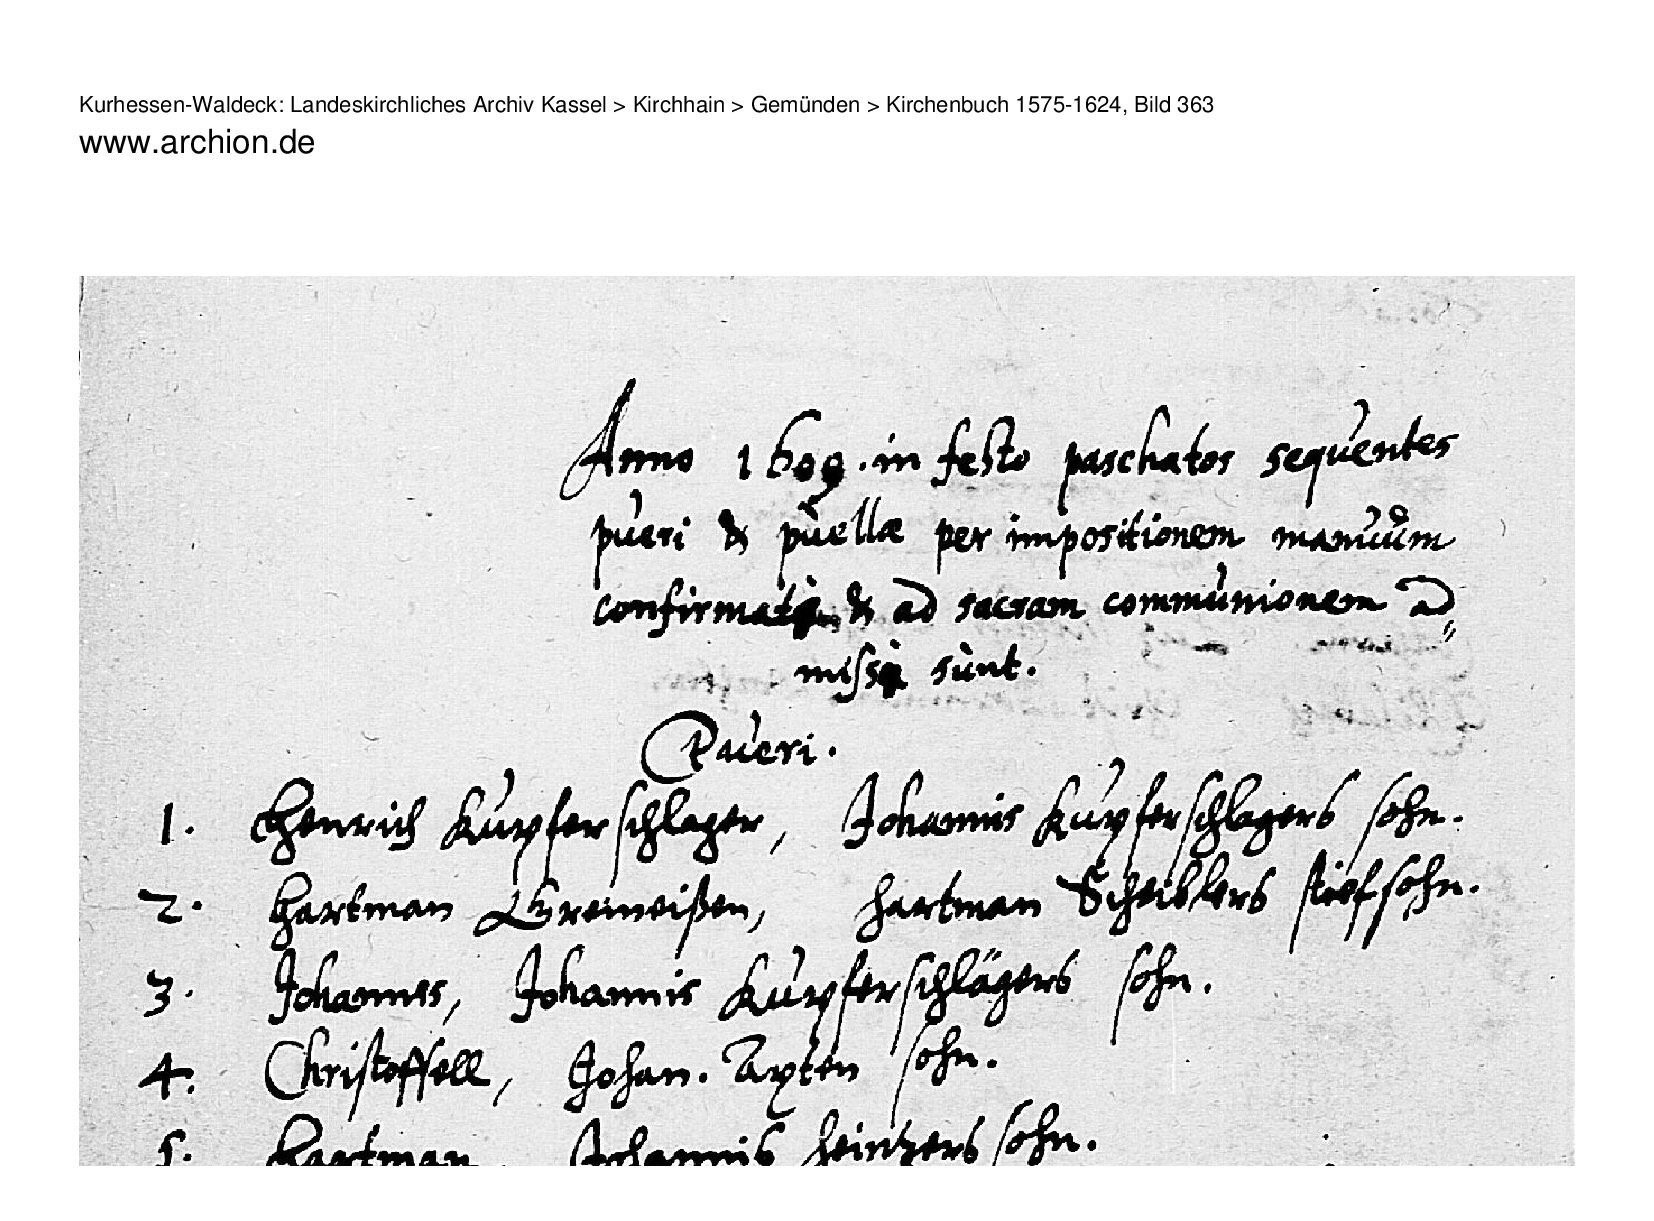 Kurhessen-Waldeck: Landeskirchliches Archiv Kassel > Kirchhain > Gemünden > Kirchenbuch 1575-1624, Bild 363
www.archion.de
Anno 1609. in festo paschatos sequentes
pueri & puellæ per impositionem manuum
confirmati & ad sacram communionem ad=
missi sunt.
Pueri.
1. Henrich Kupferschlager, Johannis Kupferschlagers sohn.
2. Hartman hartman Scheiblers stiefsohn.
3. Johannes, Johannis Kupferschlägers sohn.
4. Christoffell, Johan. sohn.
5. Hartman, Johannis heintzers sohn.